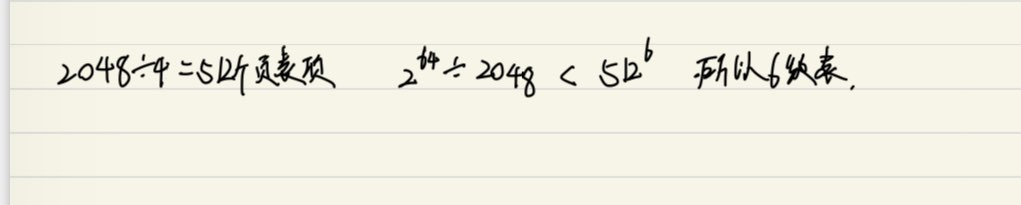 2048÷4=512个页表项 2^64÷2048 < 512^6 所以6级表.